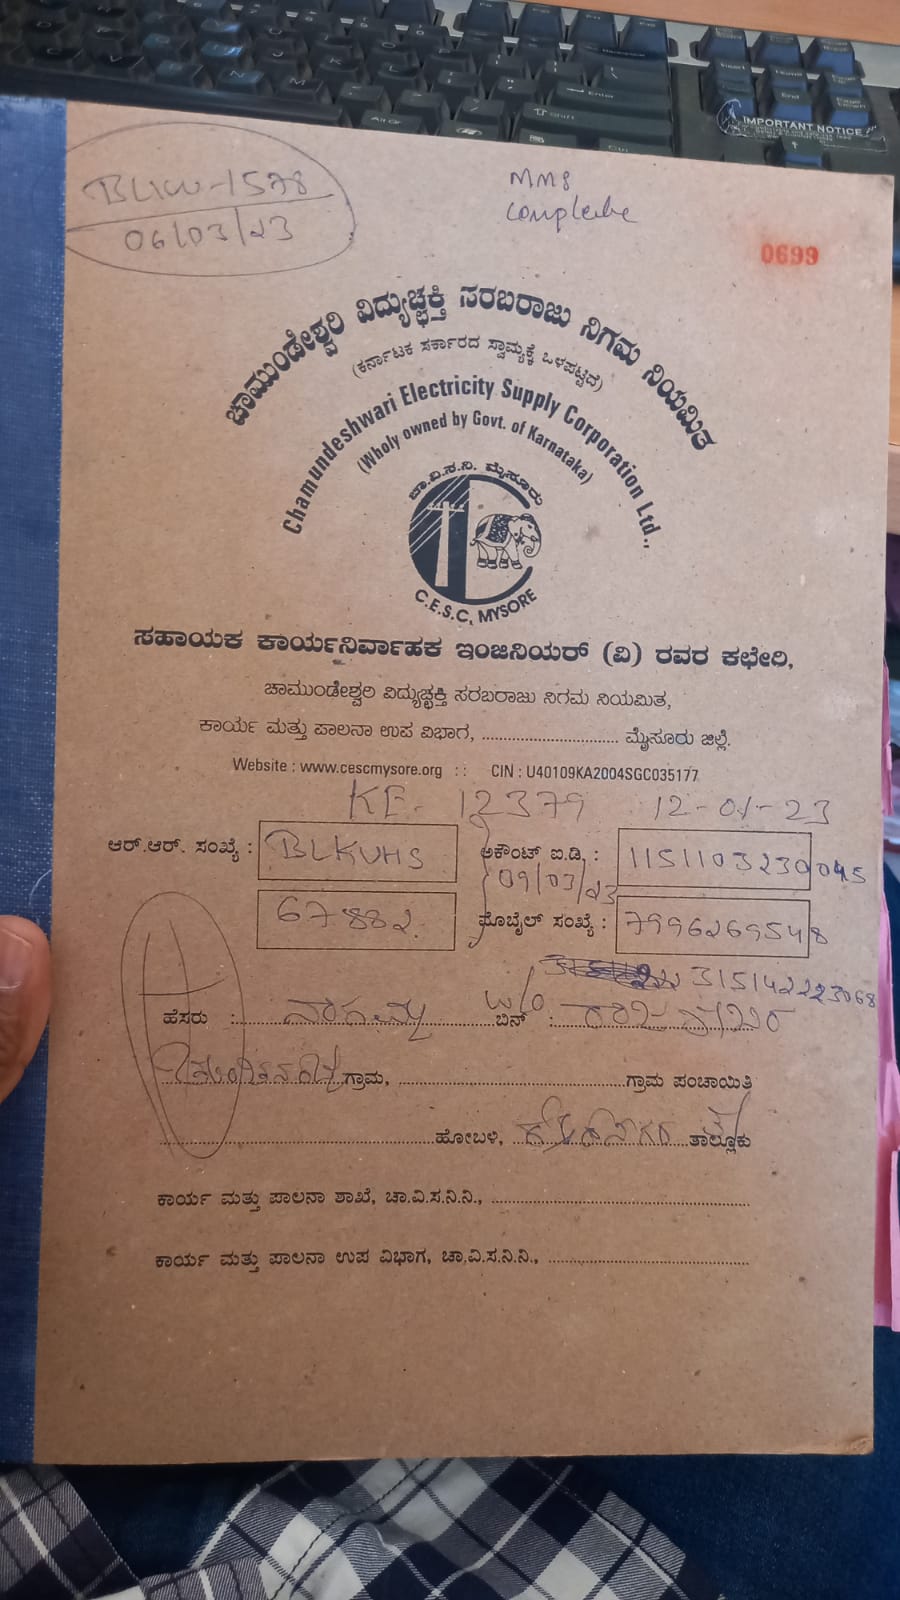 IMPORTANT NOTICE
BLKW-1578
06/03/23
MMS
complete
0699
ಚಾಮುಂಡೇಶ್ವರಿ ವಿದ್ಯುಚ್ಛಕ್ತಿ ಸರಬರಾಜು ನಿಗಮ ನಿಯಮಿತ
(ಕರ್ನಾಟಕ ಸರ್ಕಾರದ ಸ್ವಾಮ್ಯಕ್ಕೆ ಒಳಪಟ್ಟಿದೆ)
Chamundeshwari Electricity Supply Corporation Ltd.,
(Wholy owned by Govt. of Karnataka)
ಚಾ.ವಿ.ಸ.ನಿ. ಮೈಸೂರು
C.E.S.C, MYSORE
ಸಹಾಯಕ ಕಾರ್ಯನಿರ್ವಾಹಕ ಇಂಜಿನಿಯರ್ (ವಿ) ರವರ ಕಛೇರಿ,
ಚಾಮುಂಡೇಶ್ವರಿ ವಿದ್ಯುಚ್ಛಕ್ತಿ ಸರಬರಾಜು ನಿಗಮ ನಿಯಮಿತ,
ಕಾರ್ಯ ಮತ್ತು ಪಾಲನಾ ಉಪ ವಿಭಾಗ, .............................. ಮೈಸೂರು ಜಿಲ್ಲೆ.
Website : www.cescmysore.org : : CIN : U40109KA2004SGC035177
KE- 12379 12-01-23
ಆರ್.ಆರ್. ಸಂಖ್ಯೆ : BLKVHS ಅಕೌಂಟ್ ಐ.ಡಿ. : 1151103230045
09/03/23
67882 ಮೊಬೈಲ್ ಸಂಖ್ಯೆ : 7996269548
315142223068
ಹೆಸರು : ನಾಗಮ್ಮ W/O ಬಿನ್ :
ಗ್ರಾಮ, .............................. ಗ್ರಾಮ ಪಂಚಾಯಿತಿ
.............................. ಹೋಬಳಿ, ತಾಲ್ಲೂಕು
ಕಾರ್ಯ ಮತ್ತು ಪಾಲನಾ ಶಾಖೆ, ಚಾ.ವಿ.ಸ.ನಿ.ನಿ., ..............................
ಕಾರ್ಯ ಮತ್ತು ಪಾಲನಾ ಉಪ ವಿಭಾಗ, ಚಾ.ವಿ.ಸ.ನಿ.ನಿ., ..............................